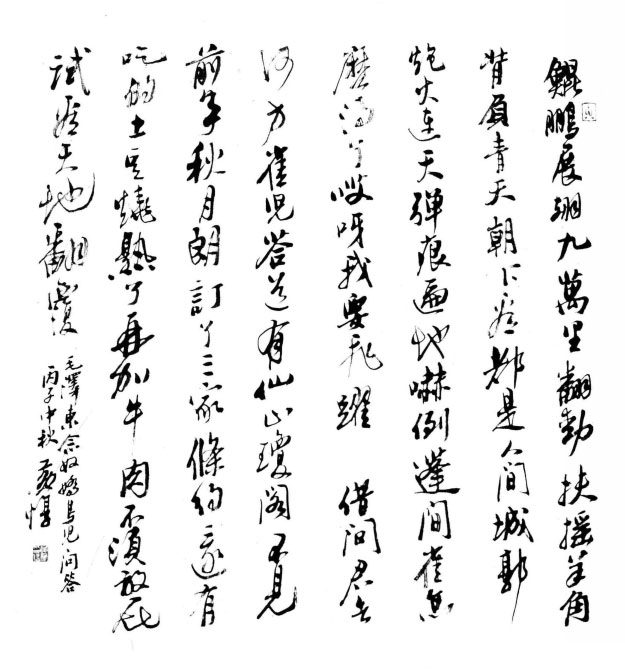 鯤鵬展翅九萬里翻動扶搖羊角
背負青天朝下看都是人間城郭
炮火連天彈痕遍地嚇倒蓬間雀怎
麼得了哎呀我要飛躍 借問君去
何方雀兒答道有仙山瓊閣不見
前年秋月朗訂了三家條約還有
吃的土豆燒熟了再加牛肉不須放屁
試看天地翻覆
毛澤東念奴嬌鳥兒問答
丙子中秋黃惇